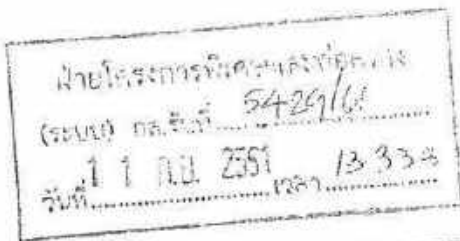 ฝ่ายโครงการพิเศษและ
(ระบบ) กส.รับที่ 5429/61
วันที่ 11 ก.ย. 2561 เวลา 13.33